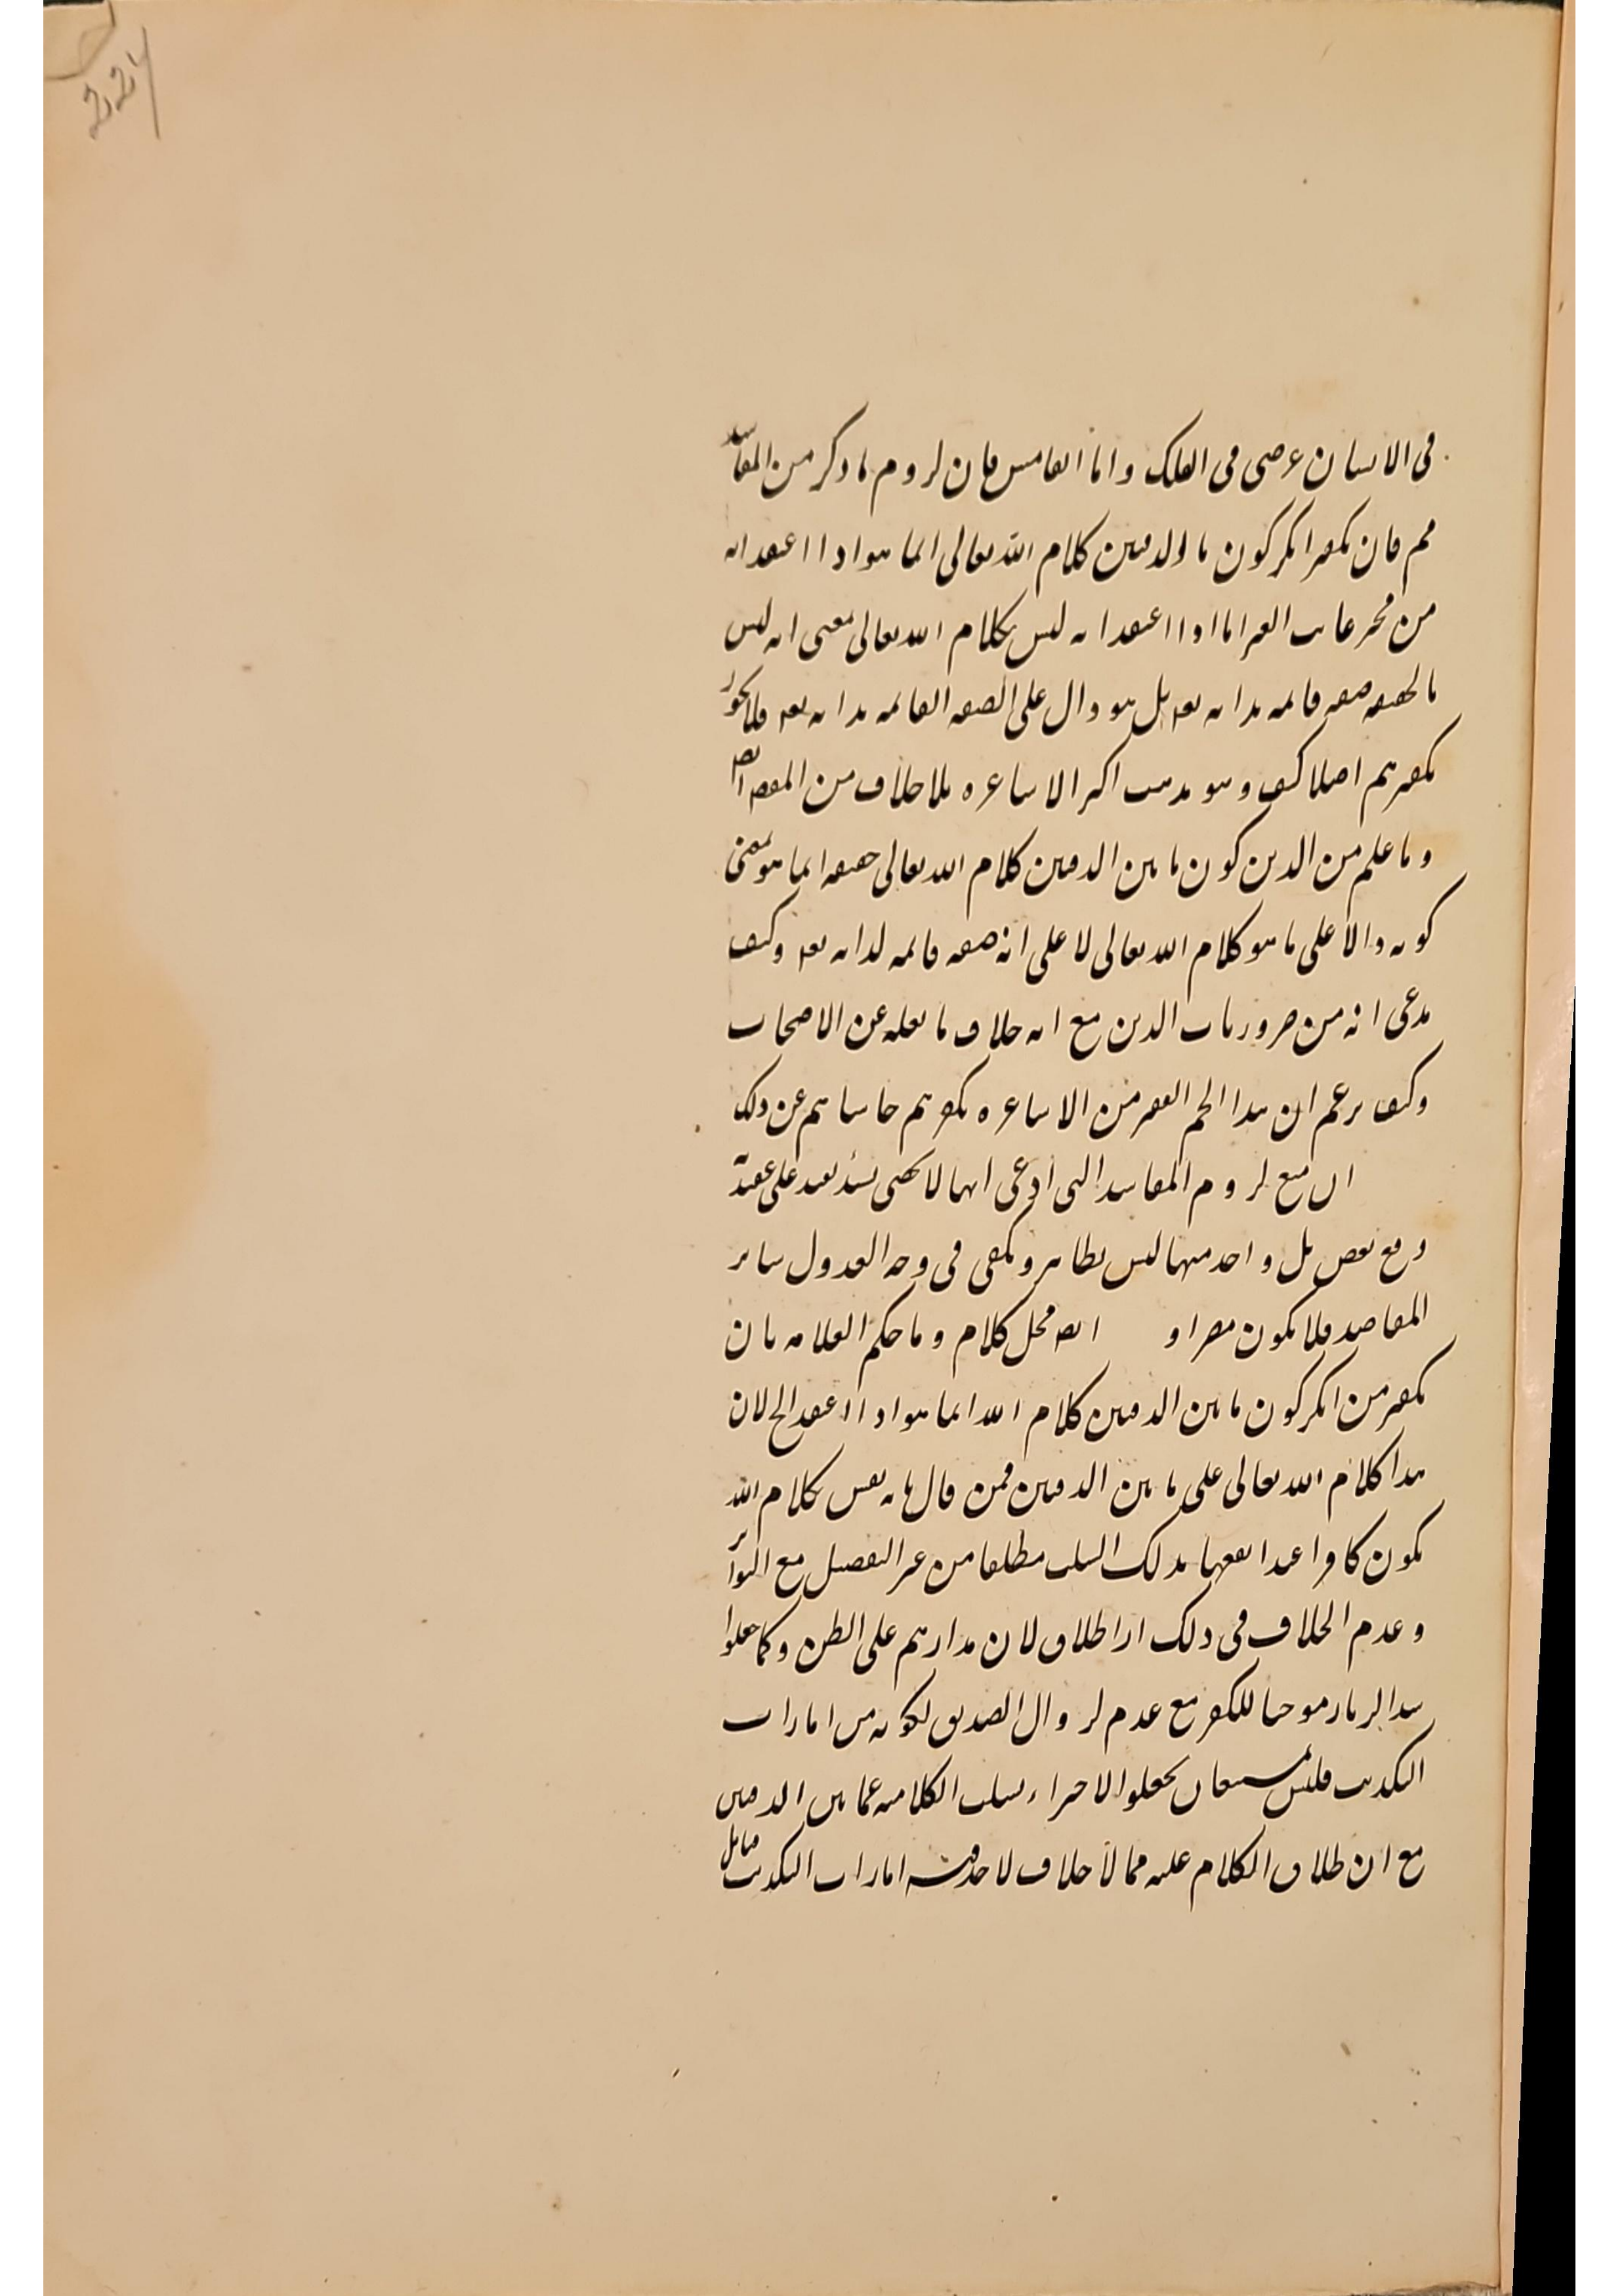 224
فى الانسان عرضى فى الفلك واما الخامس فان لزوم ما ذكر من المفاسد
مم فان تكفير انكر كون ما الدفتين كلام الله تعالى انما هو اذا اعتقد انه
من مخترعات الغير اما اذا اعتقد انه ليس بكلام الله تعالى بمعنى انه ليس
بالحقيقة صفة قائمة بذاته تعه بل هو دال على الصفة القائمة بذاته تعه فلا يجوز
تكفيرهم اصلا كيف وهو مذهب اكثر الاشاعرة بلا خلاف من المص ايضا
وما علم من الدين كون ما بين الدفتين كلام الله تعالى حقيقة انما هو بمعنى
كونه دالا على ما هو كلام الله تعالى لا على انه صفة قائمة لذاته تعه وكيف
يدعى انه من ضروريات الدين مع انه خلاف ما نقله عن الاصحاب
وكيف يزعم ان هذا الجم الغفير من الاشاعرة تكفرهم حاشاهم عن ذلك
ان مع لزوم المفاسد التى ادعى انها لا تحصى
ومع بعض بل واحد منها ليس بظاهر ويكفى فى وجه العدول سائر
المقاصد فلا يكون مضرا و ايضه محل كلام وما حكم العلامة بان
تكفير من انكر كون ما بين الدفتين كلام الله انما هو اذا اعتقد الخ لان
هذا كلام الله تعالى على ما بين الدفتين فمن قال بانه ليس كلام الله
يكون كافرا عند الفقهاء بذلك السلب مطلقا من غير التفصيل مع التواتر
وعدم الخلاف فى ذلك لان مدارهم على الظن وكما جعلوا
شد الزنار موجبا للكفر مع عدم لزوال التصديق لكونه من امارات
التكذيب فليس يجعلوا الاجتراء بسلب الكلامية عما بين الدفتين
مع ان طلاق الكلام عليه مما لا خلاف لاحد فيه امارات التكذيب فتامل